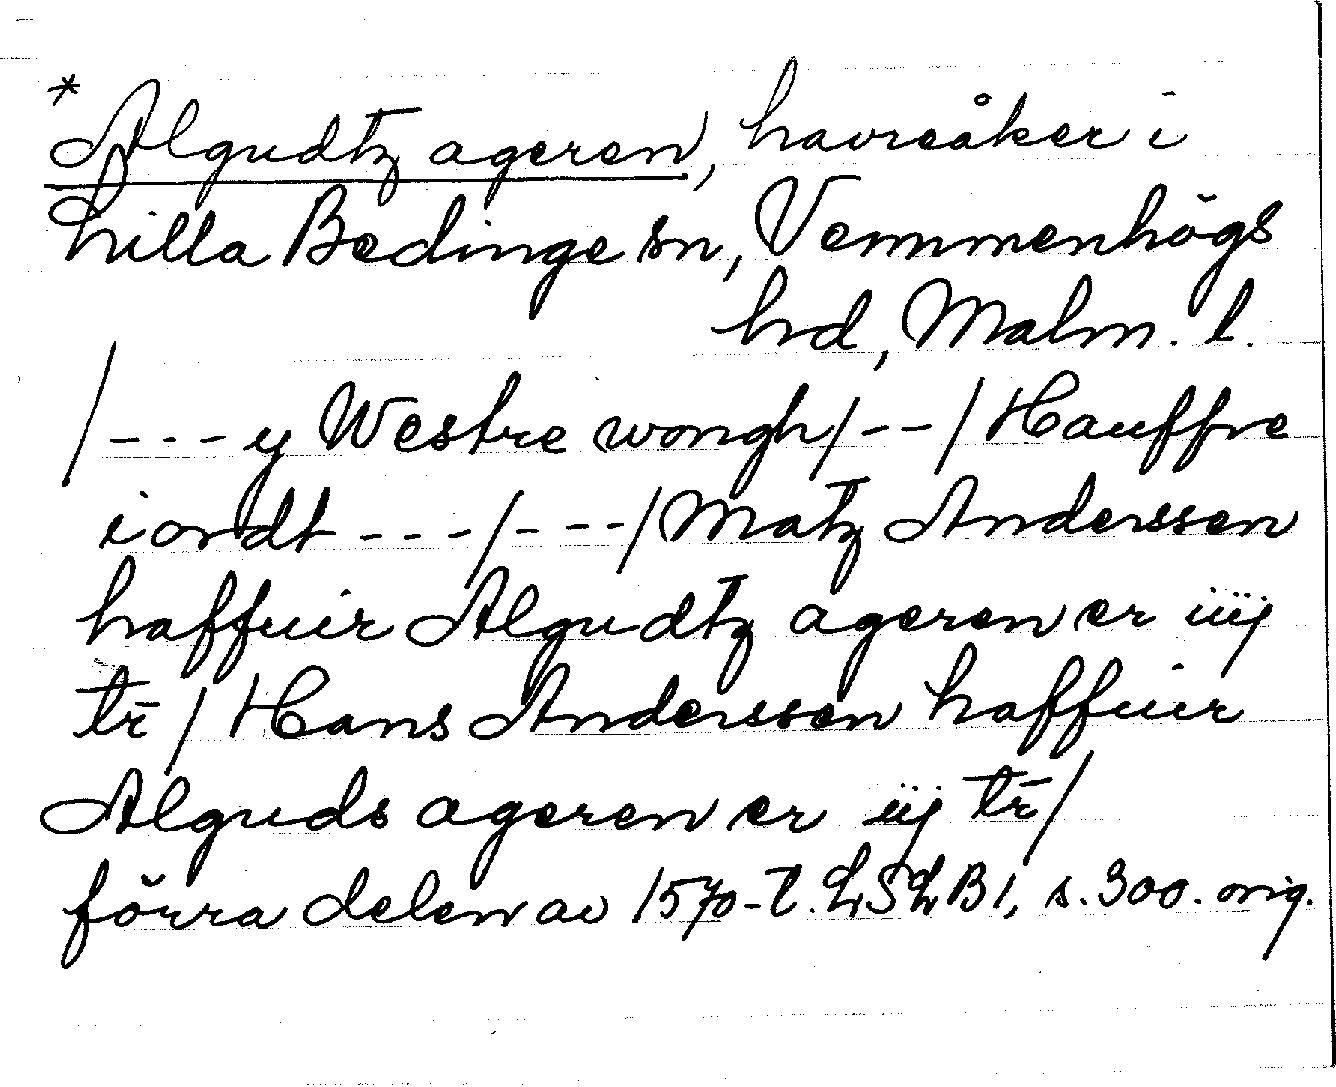 * Algudtz ageren, havreåker i
Lilla Bedinge sn, Vemmenhögs
hrd, Malm. l.
/---y Westre wongh/--/Hauffre
iordt ---/---/Matz Anderssen
haffuir Algudtz ageren er iiij
tr̄/Hans Anderssen haffuir
Alguds ageren er iij tr̄/
förra delen av 1570-t. LSLB1, s. 300. orig.